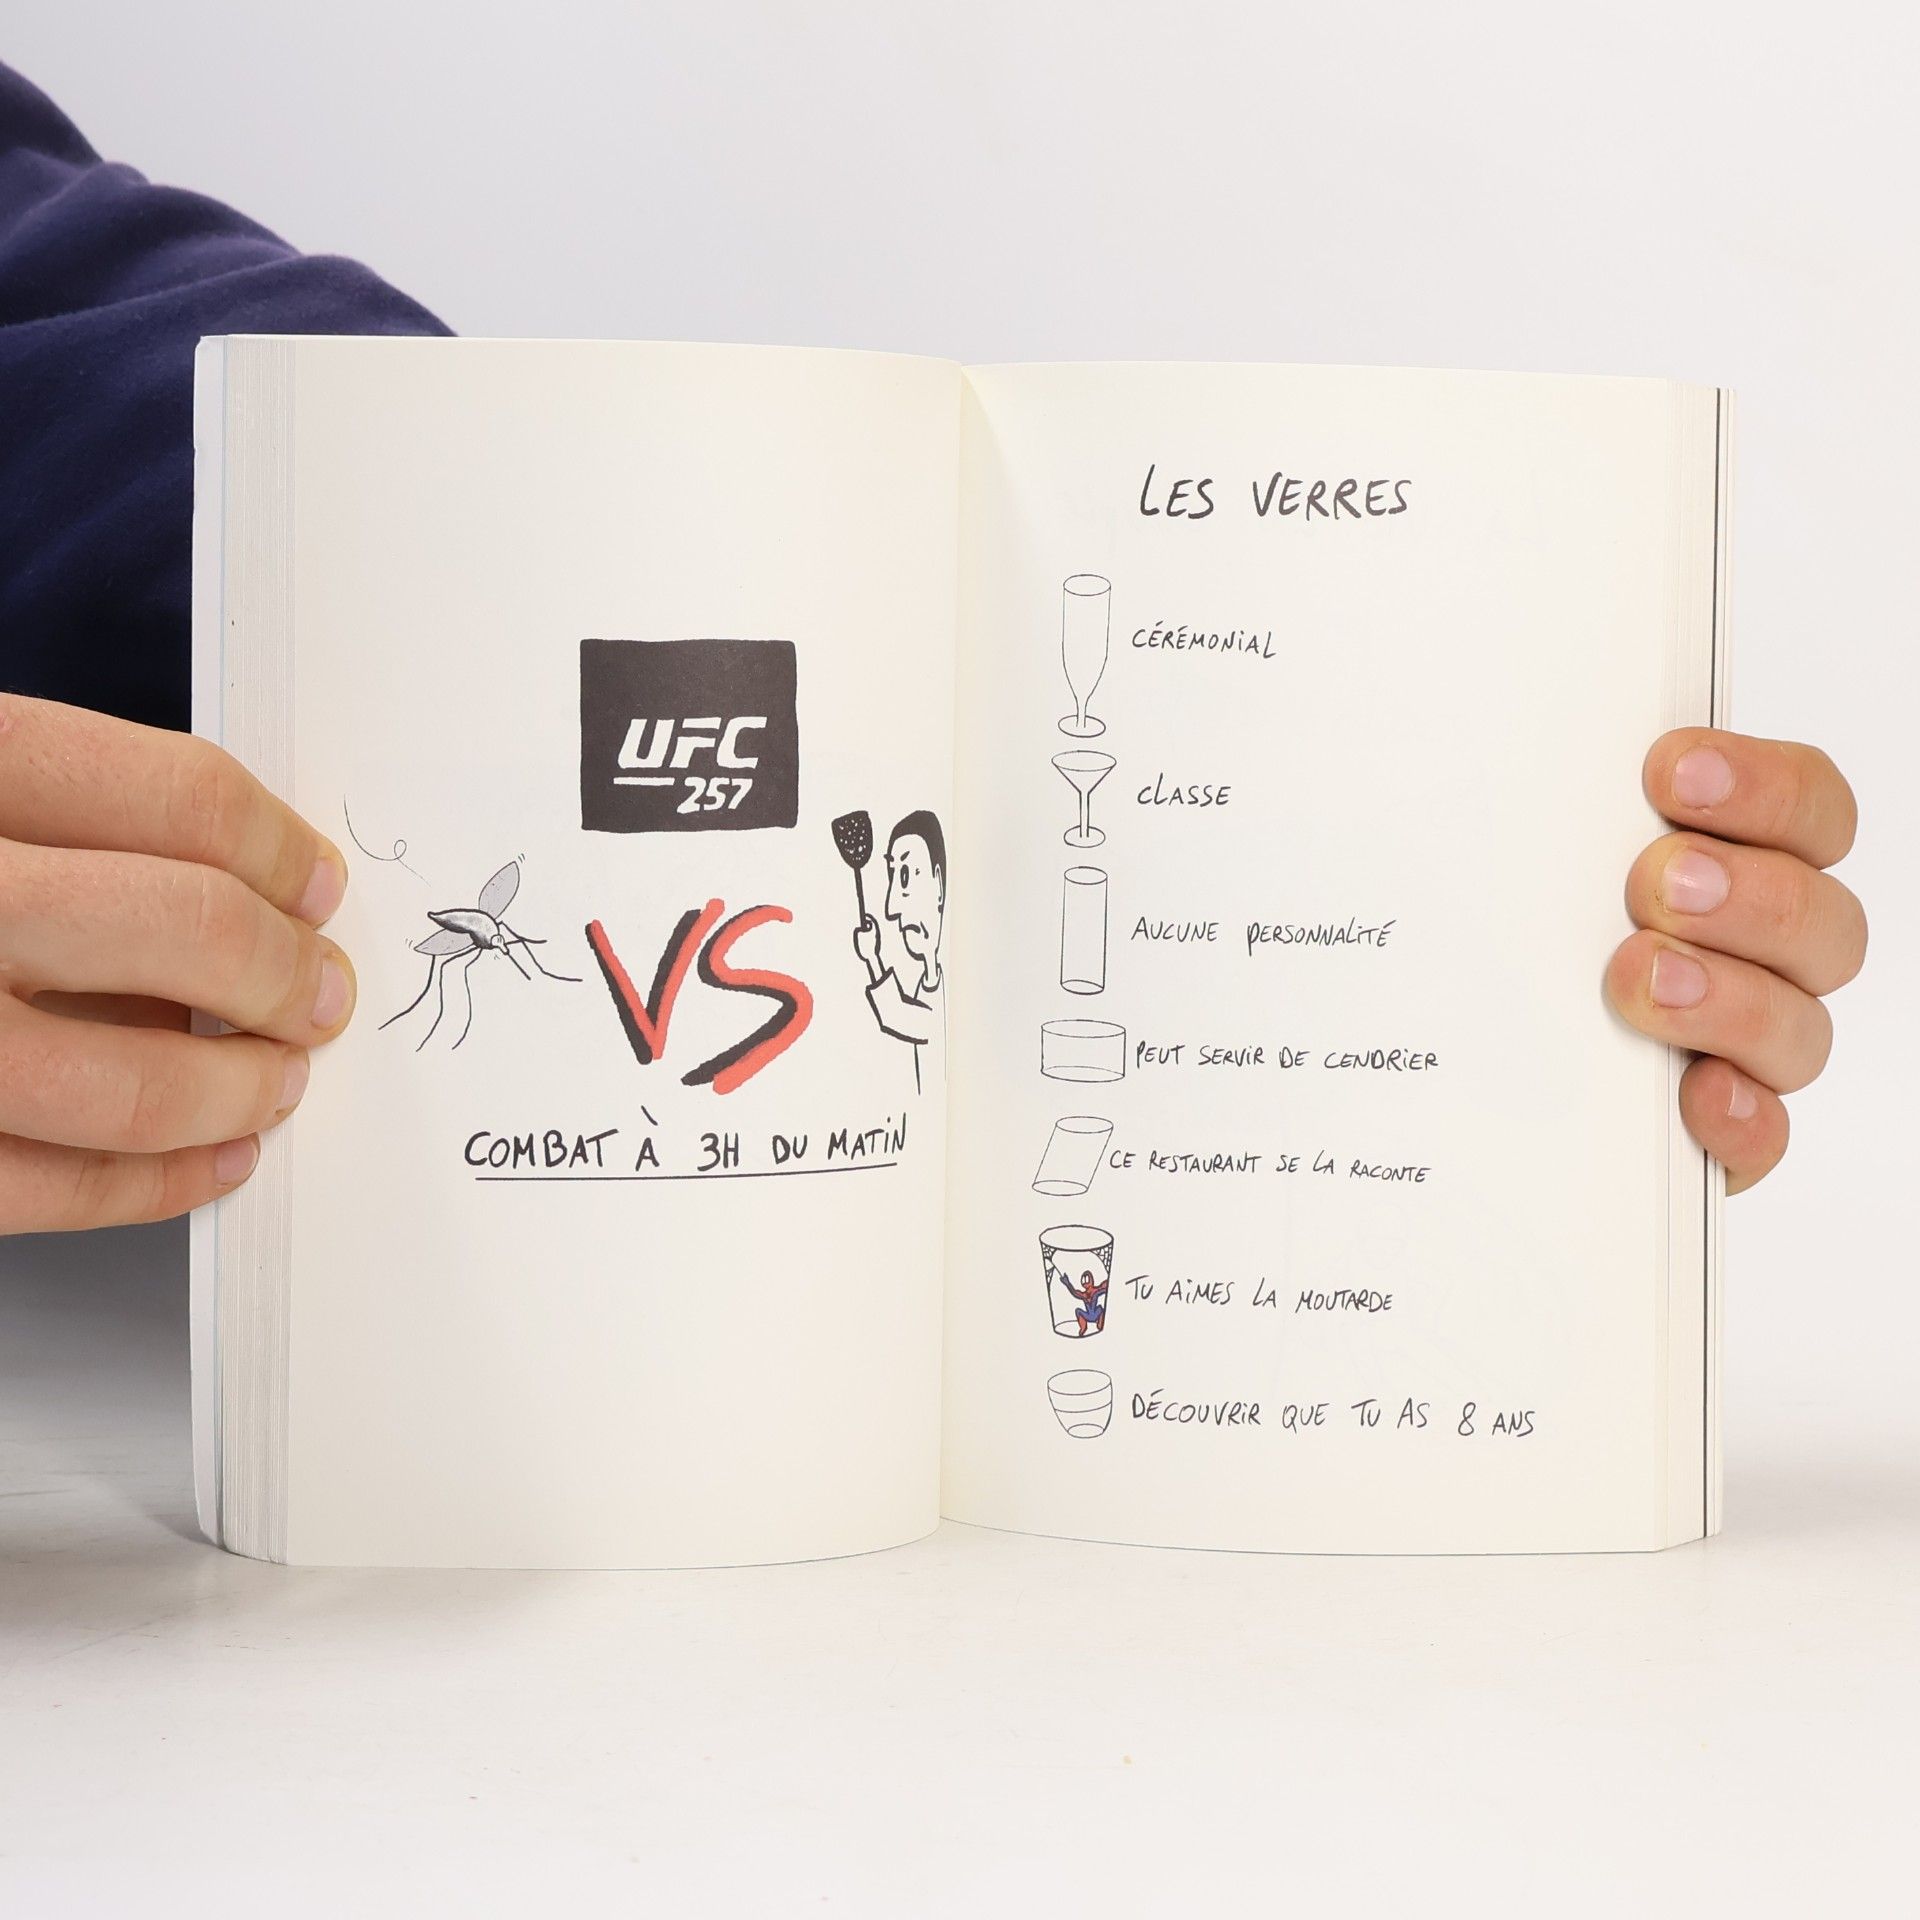 UFC
257
VS
COMBAT À 3H DU MATIN
LES VERRES
CÉRÉMONIAL
CLASSE
AUCUNE PERSONNALITÉ
PEUT SERVIR DE CENDRIER
CE RESTAURANT SE LA RACONTE
TU AIMES LA MOUTARDE
DÉCOUVRIR QUE TU AS 8 ANS